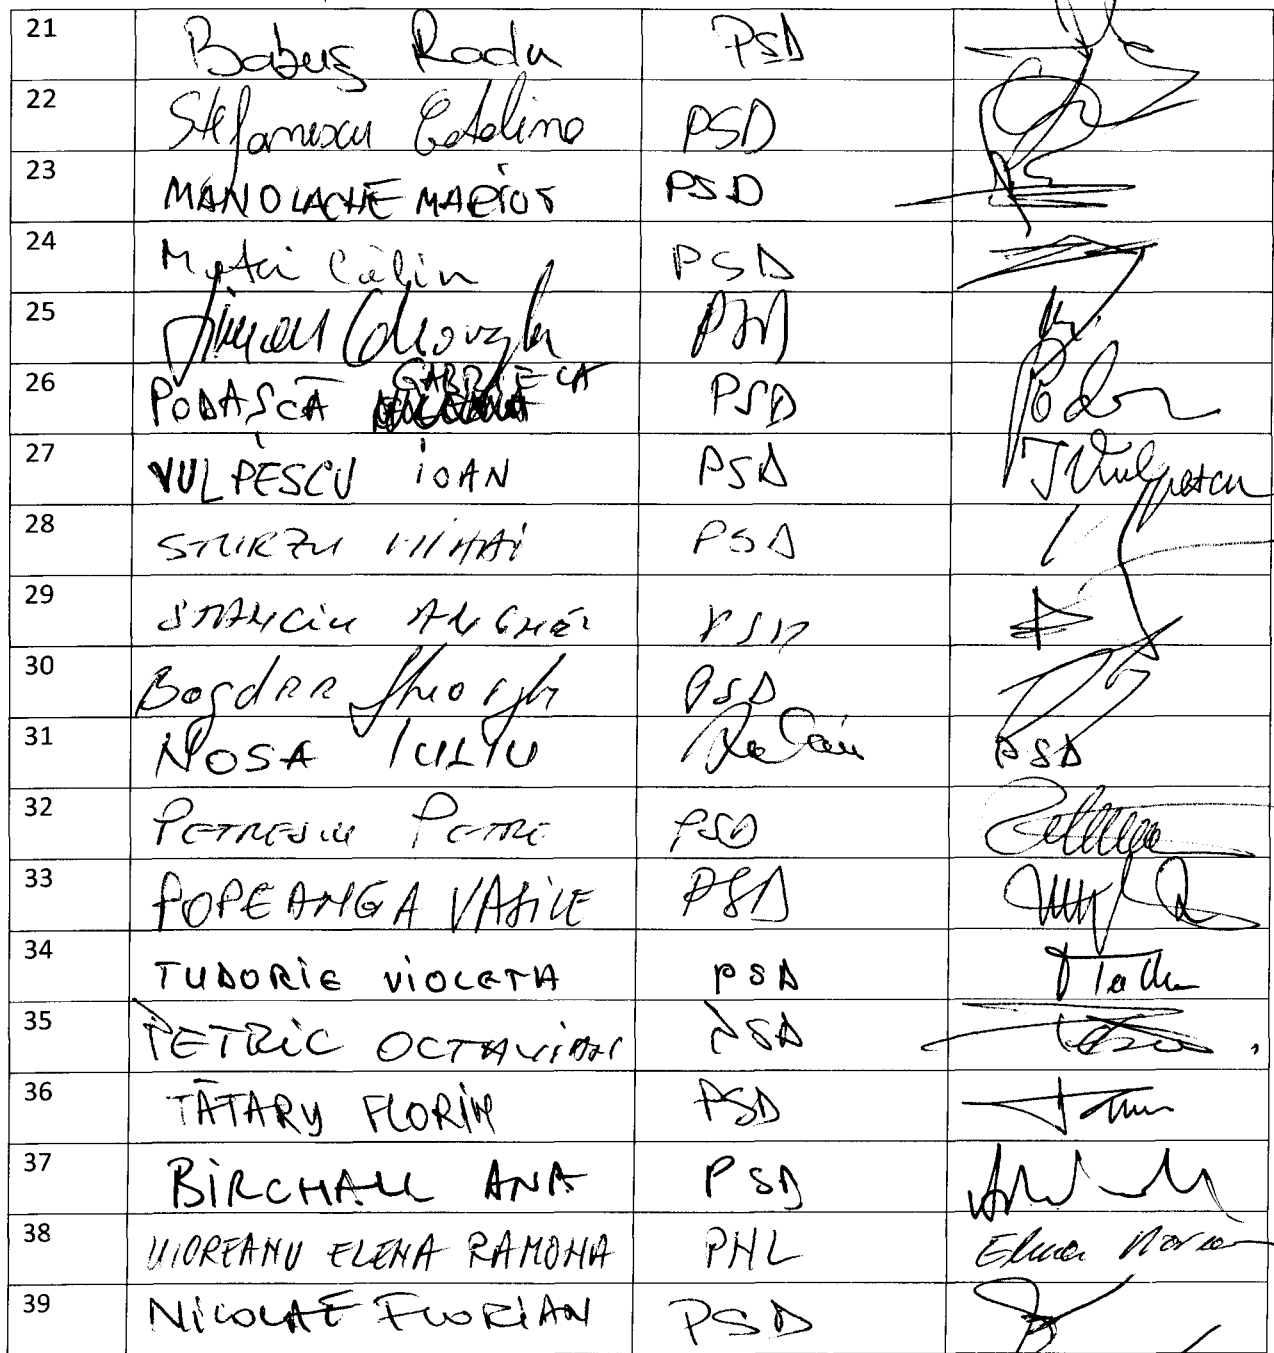 21 Babuș Radu PSD
22 Stefanescu Catalina PSD
23 MANOLACHE MARIUS PSD
24 Matei Călin PSD
25 Simon Gheorghe PSD
26 PODAȘCĂ GABRIELA PSD
27 VULPESCU IOAN PSD IVulpescu
28 STURZU MIHAI PSD
29 STANCIU ANGHEL PSD
30 Bogdan Gheorghe PSD
31 NOSA IULIU PSD
32 PETRESCU PETRE PSD
33 POPEANGA VASILE PSD
34 TUDORIE VIOLETA PSD
35 PETRIC OCTAVIAN PSD
36 TĂTARU FLORIN PSD
37 BIRCHALL ANA PSD
38 UIOREANU ELENA RAMONA PNL Elena
39 NICOLAE FLORIAN PSD